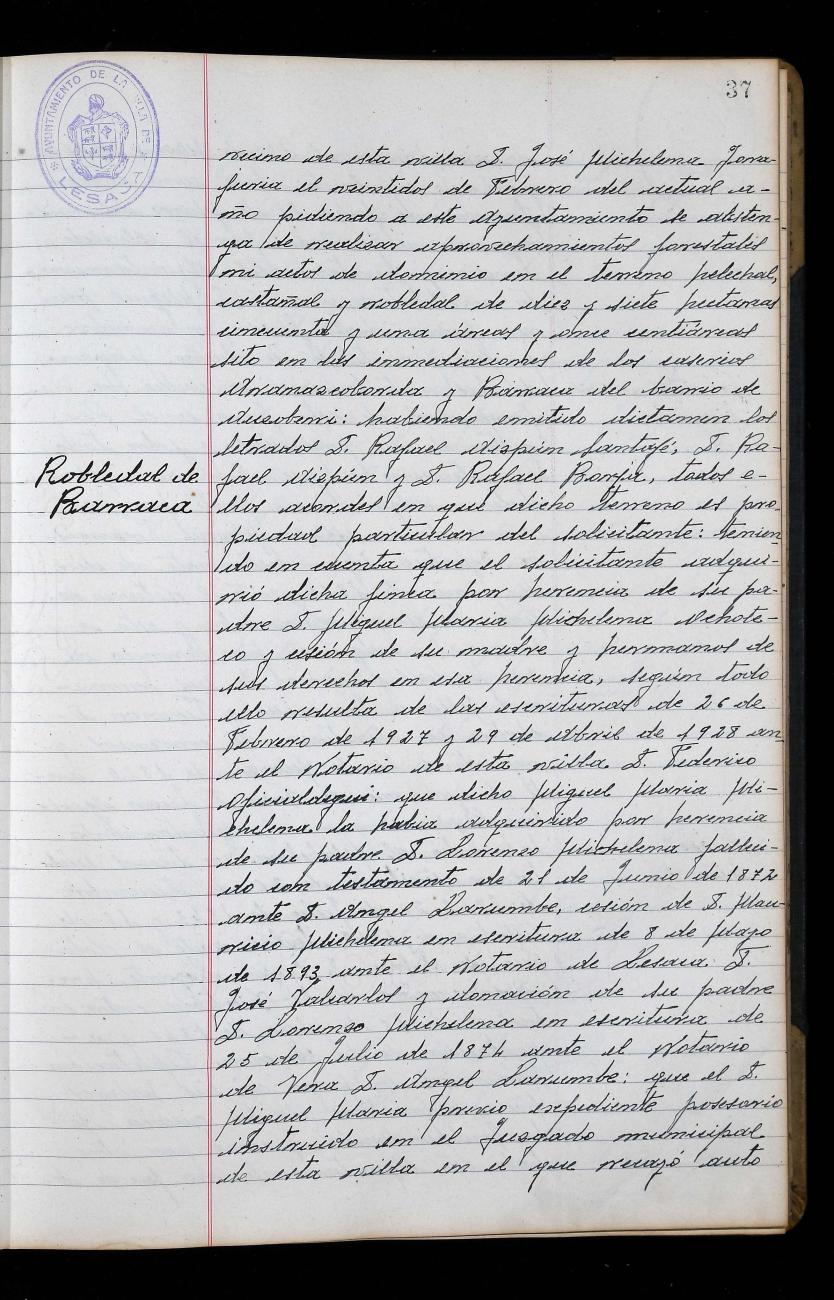 37
AYUNTAMIENTO DE LA VILLA DE
LESACA
vecino de esta villa D. José Michelena Jona-
furia el veintidos de Febrero del actual a-
ño pidiendo a este Ayuntamiento se absten-
ga de realizar aprovechamientos forestales
ni actos de dominio en el terreno helechal,
castañal y robledal de diez y siete hectareas
cincuenta y una áreas y once centiáreas
sito en las inmediaciones de los caserios
y Barraca del barrio de
habiendo emitido dictamen los
letrados D. Rafael Aizpún Santafé, D. Ra-
fael Aizpún y D. Rafael Borja, todos e-
llos acordes en que dicho terreno es pro-
piedad particular del solicitante: tenien
do en cuenta que el solicitante adqui-
rió dicha finca por herencia de su pa-
dre D. Miguel Maria Michelena Ochote-
co y cesión de su madre y hermanos de
sus derechos en esa herencia, según todo
ello resulta de las escrituras de 26 de
Febrero de 1927 y 29 de Abril de 1928 an
te el Notario de esta villa D. Federico
Oficialdegui: que dicho Miguel Maria Mi-
chelena la habia adquirido por herencia
de su padre D. Lorenzo Michelena falleci-
do con testamento de 21 de Junio de 1872
ante D. Angel Larumbe, cesión de D. Mau-
ricio Michelena en escritura de 8 de Mayo
de 1893 ante el Notario de Lesaca D.
José Valcarlos y donación de su padre
D. Lorenzo Michelena en escritura de
25 de Julio de 1874 ante el Notario
de Vera D. Angel Larumbe: que el D.
Miguel Maria previo expediente posesorio
instruido en el Juzgado municipal
de esta villa en el que recayó auto
Robledal de
Barraca